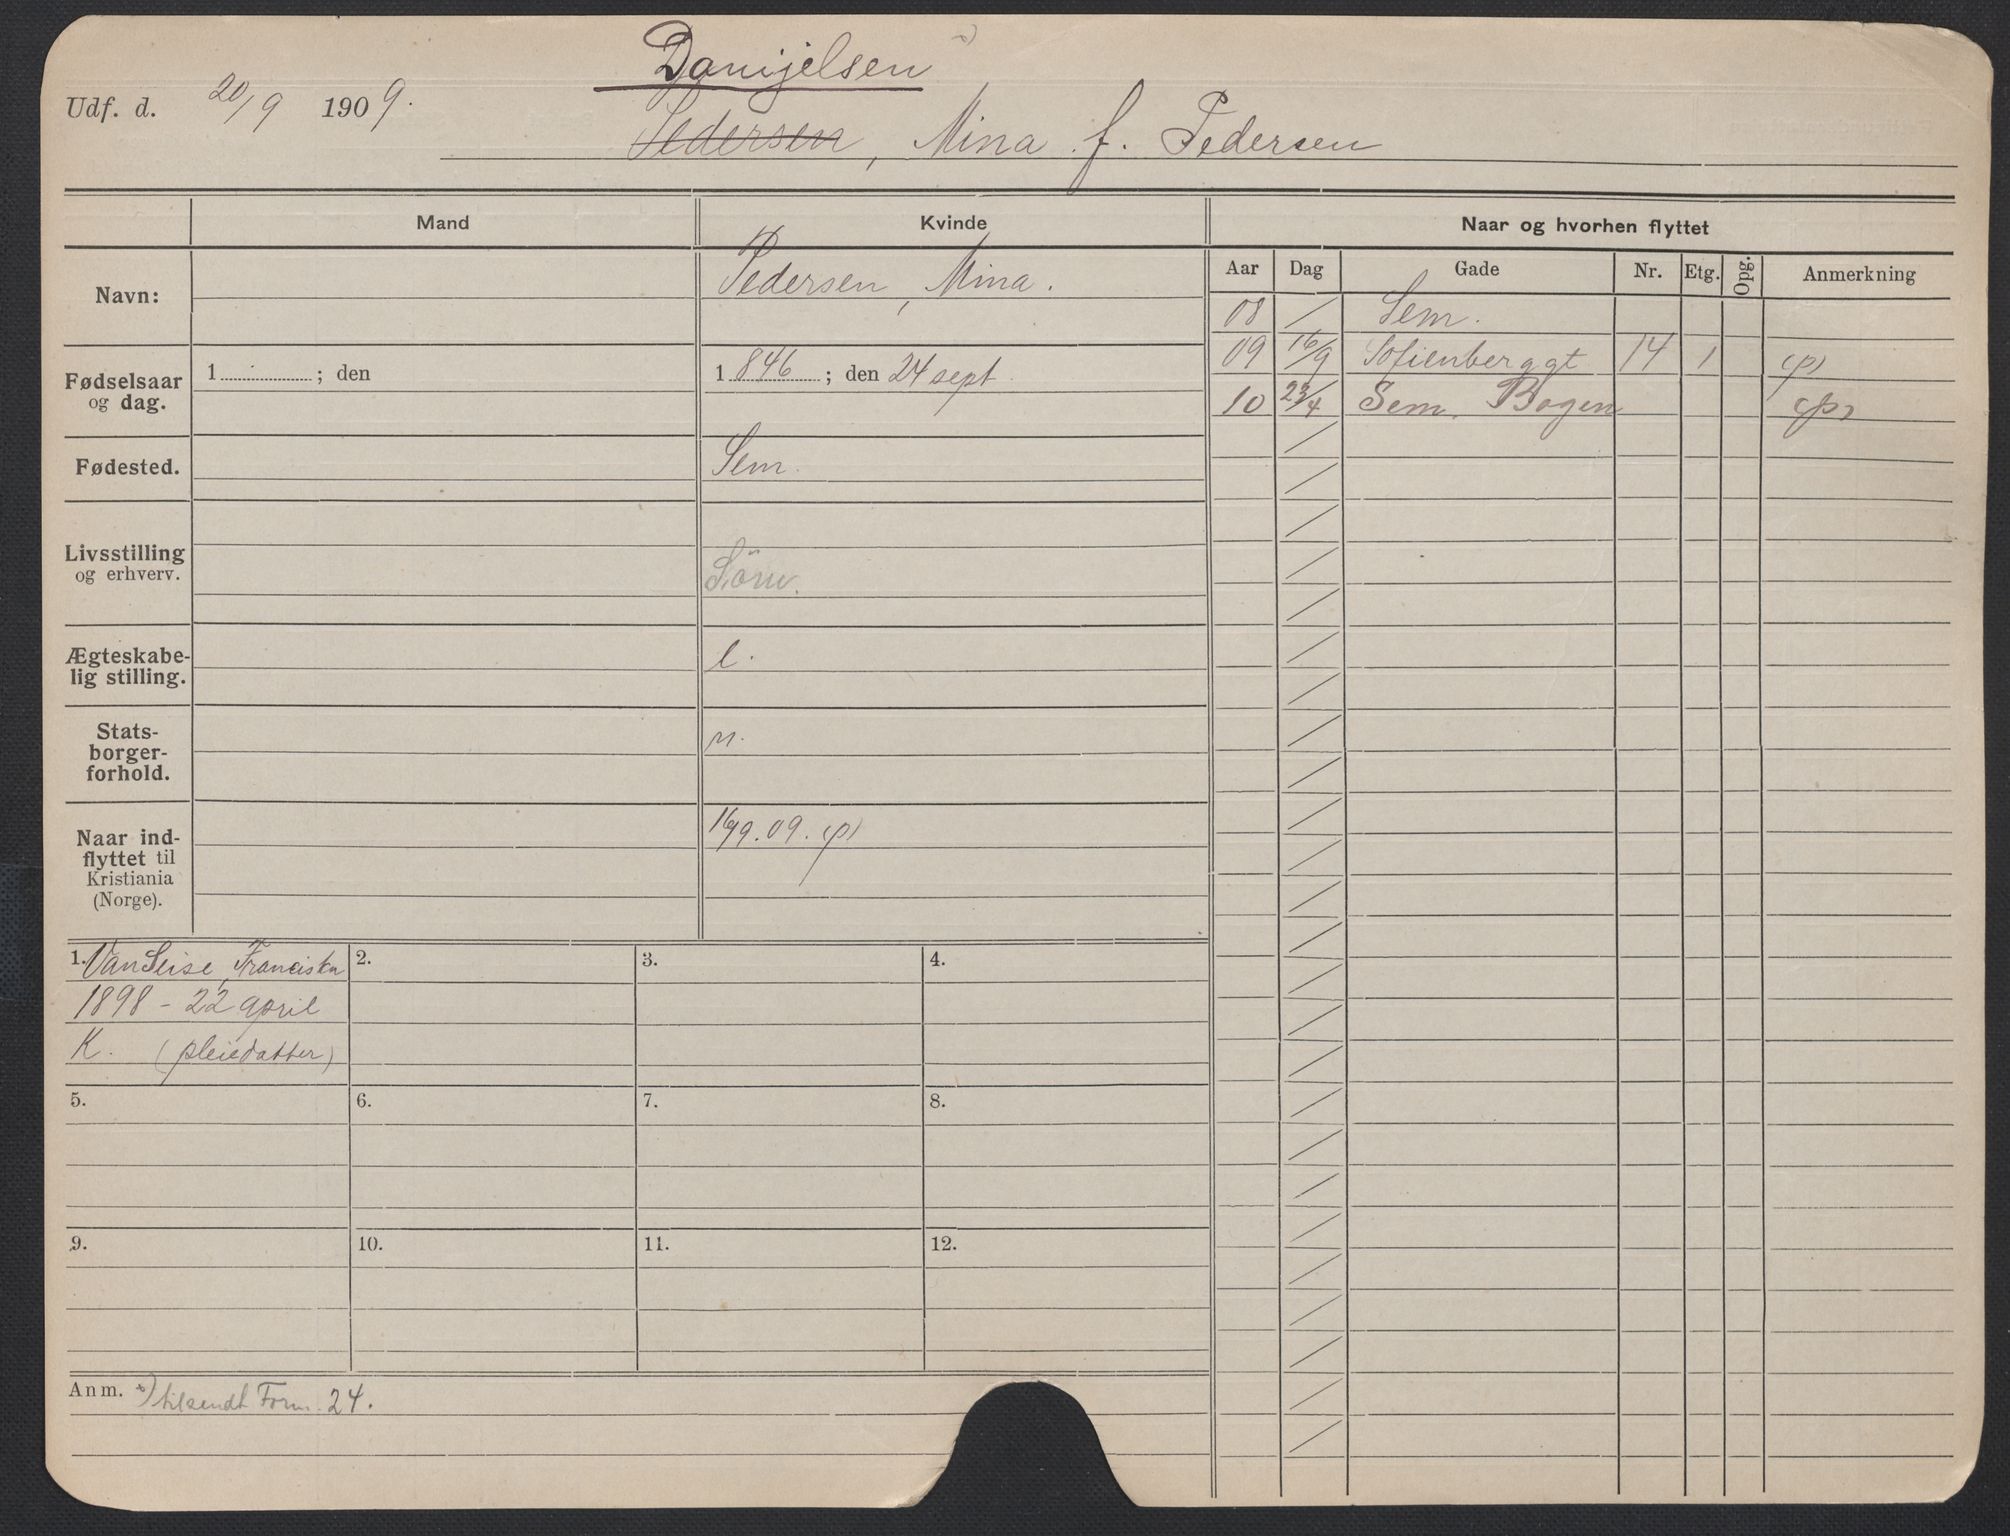 Danijelsen
Udf. d. 20/9 1909.
Pedersen, Mina f. Pedersen
Mand
Kvinde
Naar og hvorhen flyttet
Navn:
Pedersen, Mina.
Aar Dag Gade Nr. Etg. Opg. Anmerkning
08 / Sem.
09 16/9 Sofienberggt 14 1 (p)
10 23/4 Sem. Bogen (p)
Fødselsaar
og dag.
1 ; den
1846 ; den 24 sept.
Fødested.
Sem.
Livsstilling
og erhverv.
Ægteskabe-
lig stilling.
e.
Stats-
borger-
forhold.
n.
Naar ind-
flyttet til
Kristiania
(Norge).
16/9.09. (p)
1. Van Seise, Franciska
1898 - 22 april
K. (pleiedatter)
2.
3.
4.
5.
6.
7.
8.
9.
10.
11.
12.
Anm. tilsendt Form. 24.